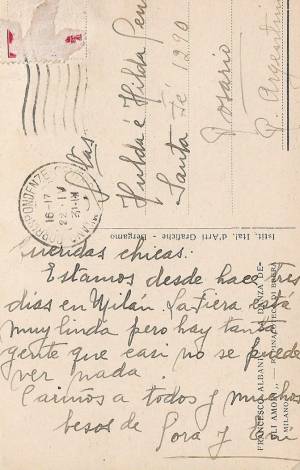 Stas.
Hulda é Hilda
Santa Fé 1290
Rosario
R. Argentina
CORRISPONDENZE
16-17
22 · IV
Istit. Ital. d'Arti Grafiche - Bergamo
FRANCESCO ALBANI - "LA DANZA DE-
GLI AMORI" - R. PINACOTECA DI BRERA
MILANO
Queridas chicas:
Estamos desde hace tres
días en Milán. La Fiera está
muy linda pero hay tanta
gente que casi no se puede
ver nada.
Cariños a todos y muchos
besos de Dora y